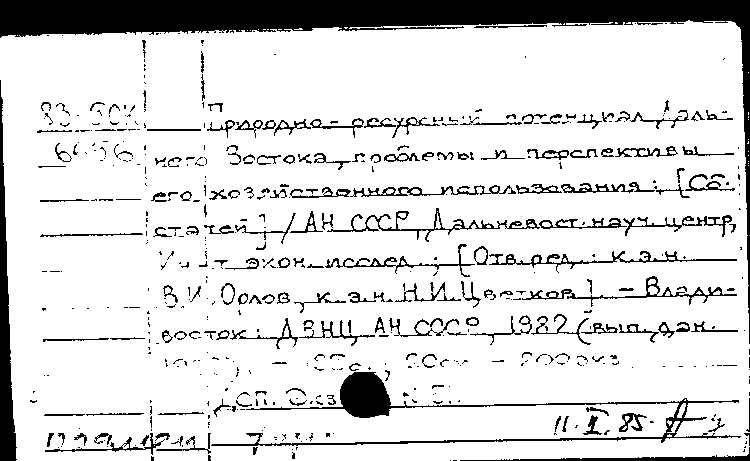 83-5СК Природно-ресурсный потенциал Даль-
6656 него Востока, проблемы и перспективы
его хозяйственного использования: [Сб.
статей] / АН СССР, Дальневост. науч. центр,
экон. исслед.; [Отв. ред.: к.э.н.
В.И. Орлов, к.э.н. Н.И. Цветков]. - Влади-
восток: ДВНЦ АН СССР, 1982 (вып. дан.
20см - 200экз
ДСП. Экз N
11.II.85.